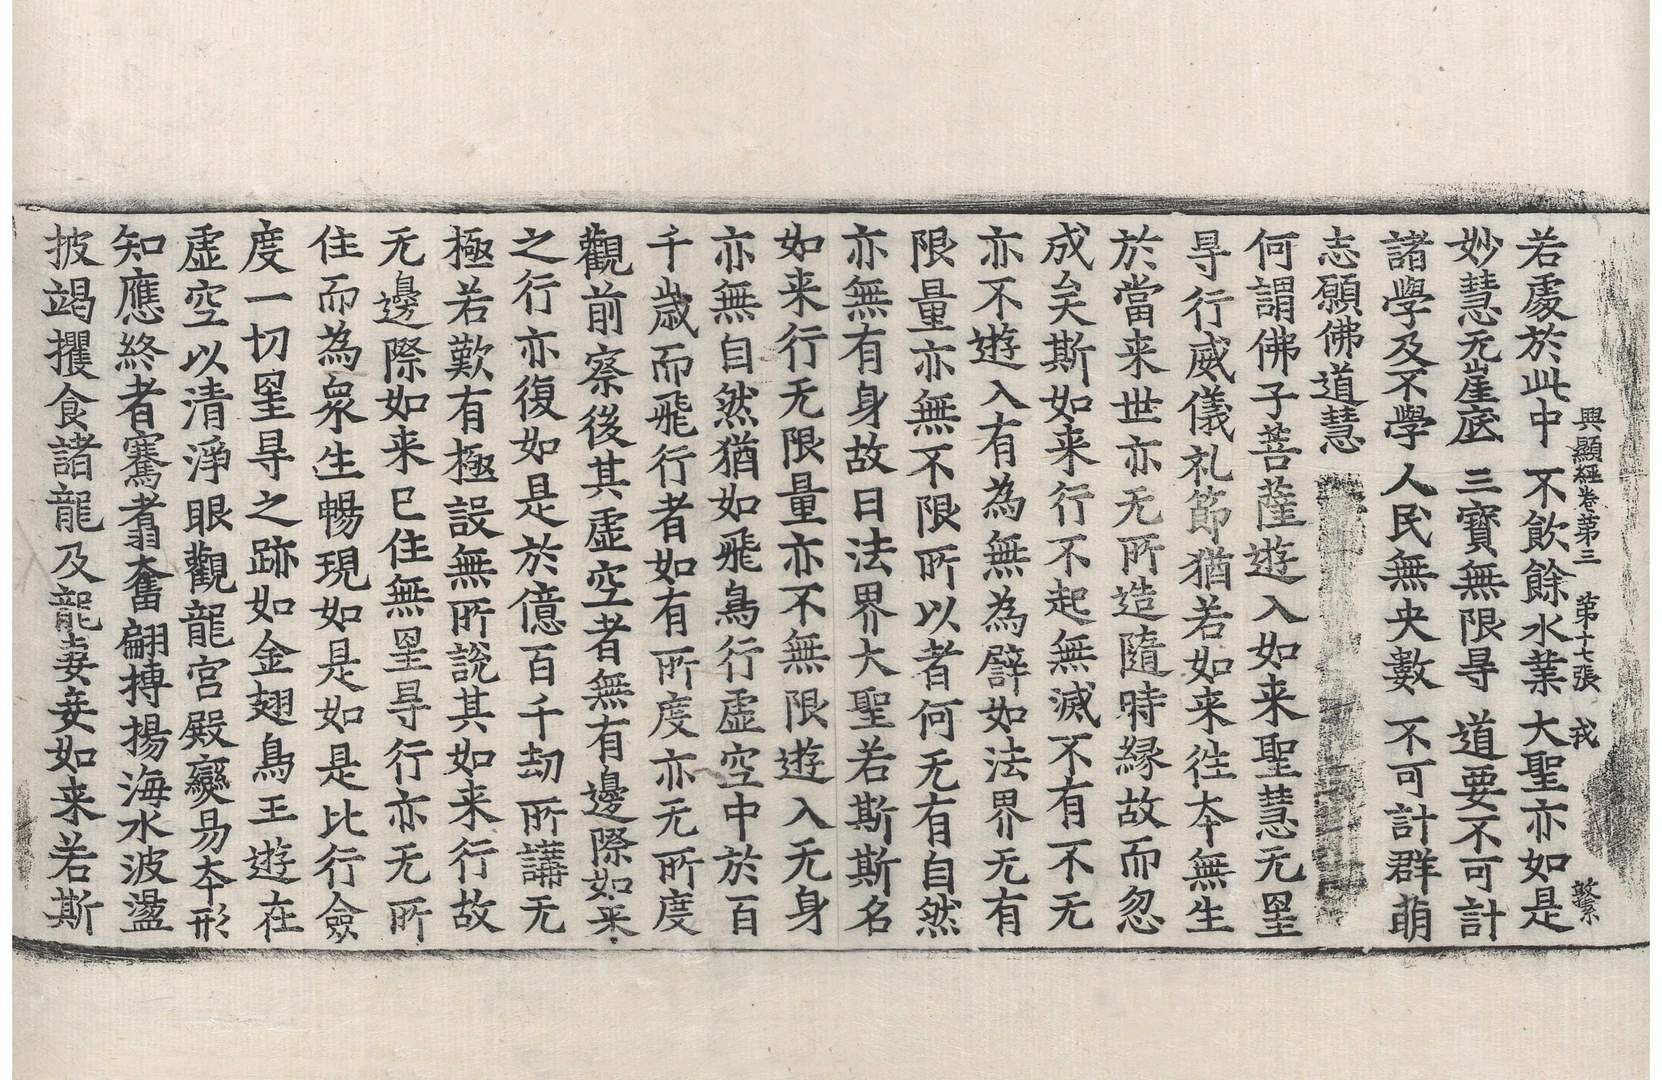 興顯經卷第三　第十七張　戎　繫
若處於此中　不飲餘水業　大聖亦如是
妙慧无崖底　三寶無限㝵　道要不可計
諸學及不學　人民無央數　不可計群萌
志願佛道慧
何謂佛子菩薩遊入如来聖慧无罣
㝵行威儀礼節猶若如来往夲無生
於當来世亦无所造隨時緣故而忽
成矣斯如来行不起無滅不有不无
亦不遊入有為無為譬如法界无有
限量亦無不限所以者何无有自然
亦無有身故曰法界大聖若斯斯名
如来行无限量亦不無限遊入无身
亦無自然猶如飛鳥行虛空中於百
千歲而飛行者如有所度亦无所度
觀前察後其虛空者無有邊際如来
之行亦復如是於億百千劫所講无
極若歎有極設無所說其如来行故
无邊際如来已住無罣㝵行亦无所
住而為衆生暢現如是如是比行僉
度一切罣㝵之跡如金翅鳥王遊在
虛空以清淨眼觀龍宮殿變易夲形
知應終者騫翥奮翮搏揚海水波盪
披竭攫食諸龍及龍妻妾如来若斯